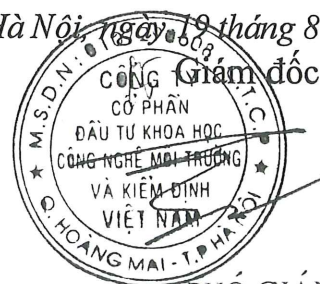 Hà Nội, ngày 19 tháng 8
Giám đốc
M.S.D.N:
C.T.C.P
CÔNG TY
CỔ PHẦN
ĐẦU TƯ KHOA HỌC
CÔNG NGHỆ MÔI TRƯỜNG
VÀ KIỂM ĐỊNH
VIỆT NAM
Q. HOÀNG MAI - T.P HÀ NỘI
PHÓ GIÁM